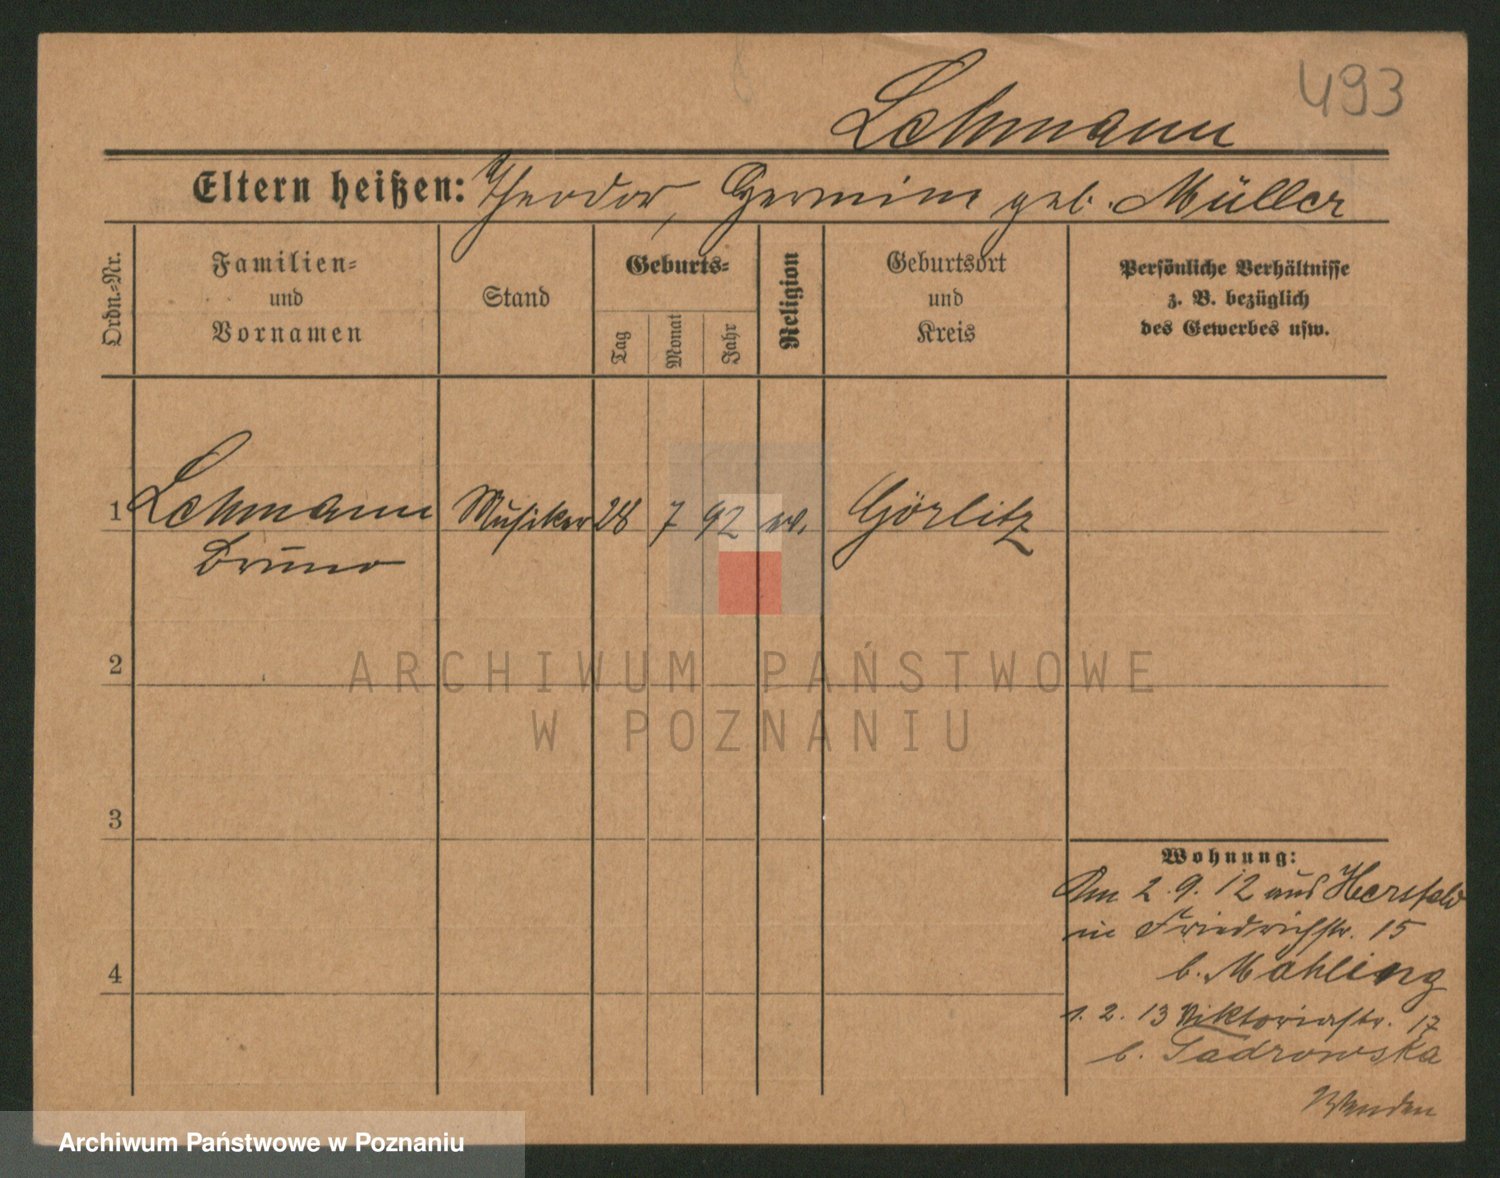 493
Lehmann
Eltern heißen: Theodor, Hermine geb. Müller
Ordn.-Nr.
Familien-
und
Vornamen
Stand
Geburts-
Tag
Monat
Jahr
Religion
Geburtsort
und
Kreis
Persönliche Verhältnisse
z. B. bezüglich
des Gewerbes usw.
1 Lehmann Musiker 28 7 92 ev. Görlitz
Bruno
2
ARCHIWUM PAŃSTWOWE
W POZNANIU
3
Wohnung:
Am 2.9.12 aus Hersfeld
in Friedrichstr. 15
b. Mahling
4
1.2.13 Viktoriastr. 17
b. Tadrowska
Wenden
Archiwum Państwowe w Poznaniu